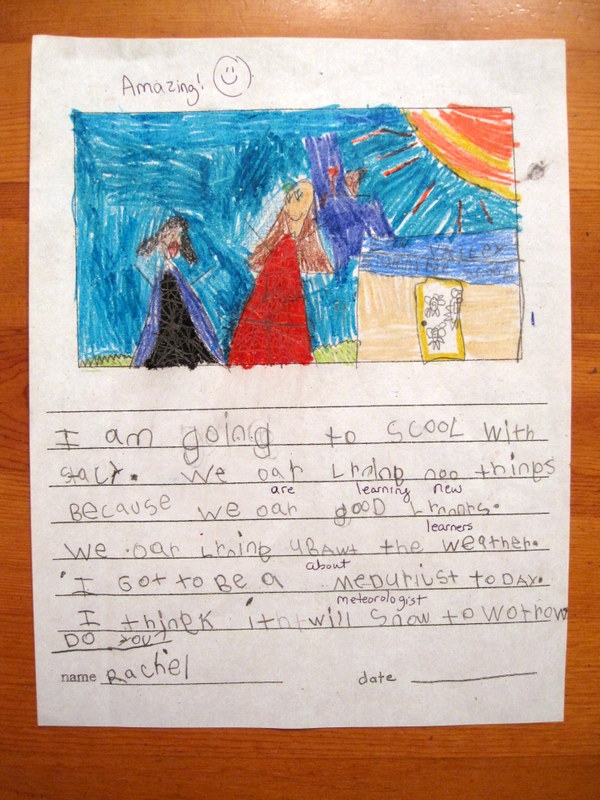 Amazing!
I am going to scool with
stacy. we oar Lrning noo things
are learning new
Because we oar gooD Lrnors.
learners
we oar Lrning ubawt the weather.
about
I GoT To Be a meDuriust toDAY.
meteorologist
I thinck it will Snow to worrow
DO You?
name Rachel date